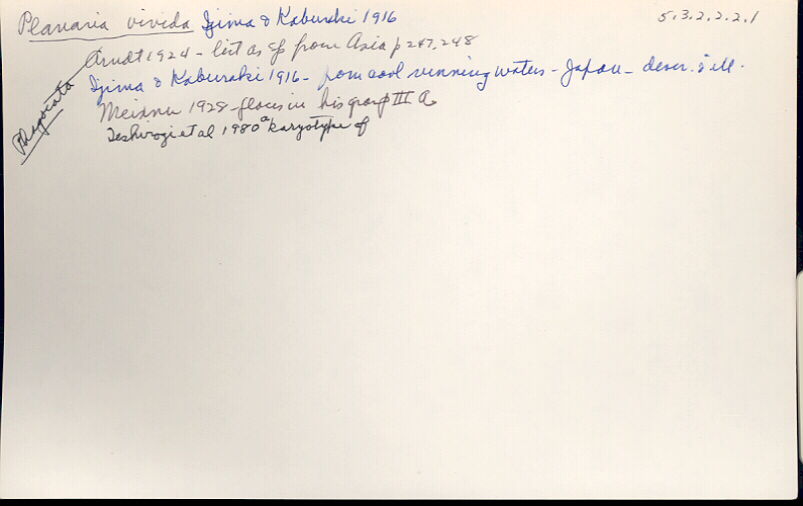 Planaria vivida Ijima & Kaburaki 1916 5.3.2.2.2.1
Arndt 1924 - list as sp from Asia p 247, 248
Ijima & Kaburaki 1916 - from cool running waters - Japan - descr. & ill.
Phagocata
Meixner 1928 - places in his group III A
Teshirogi et al 1980a karyotype of